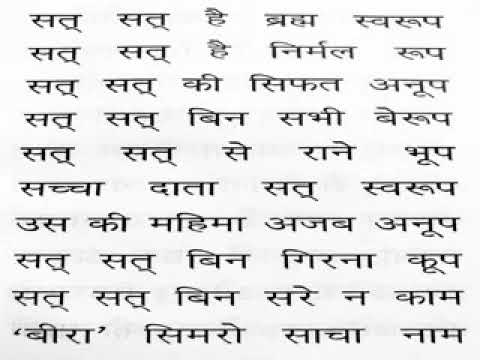 सत् सत् है ब्रह्म स्वरूप
सत् सत् है निर्मल रूप
सत् सत् की सिफत अनूप
सत् सत् बिन सभी बेरूप
सत् सत् से राने भूप
सच्चा दाता सत् स्वरूप
उस की महिमा अजब अनूप
सत् सत् बिन गिरना कूप
सत् सत् बिन सरे न काम
‘बीरा’ सिमरो साचा नाम